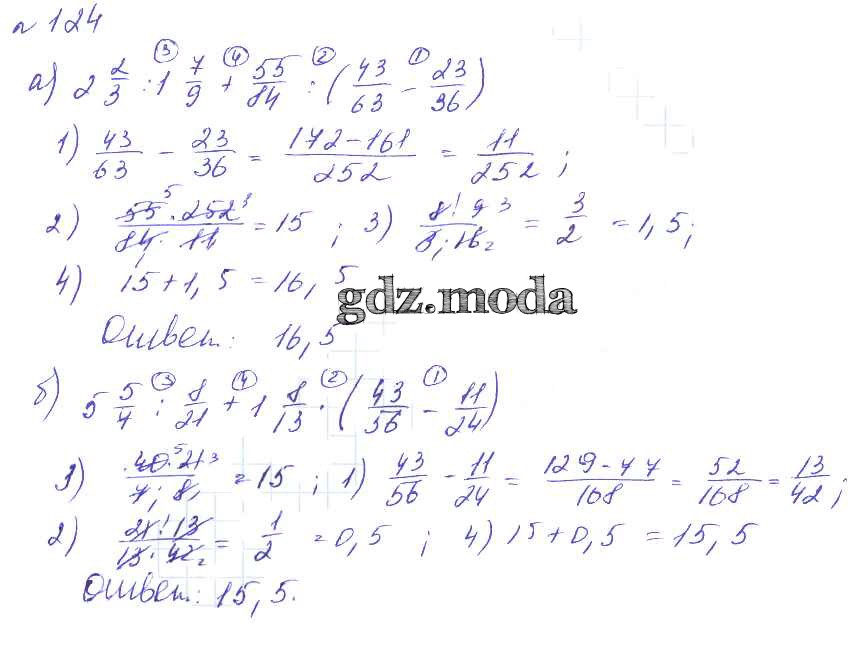 № 124
③ ④ ② ①
а) 2 2/3 : 1 7/9 + 55/84 : (43/63 - 23/36)
1) 43/63 - 23/36 = 172-161/252 = 11/252 ;
2) 55 5 · 252 3/84 1 · 11 = 15 ; 3) 8 · 9 3/3 · 16 2 = 3/2 = 1,5;
4) 15 + 1,5 = 16,5
gdz.moda
Ответ: 16,5
③ ④ ② ①
б) 5 5/7 : 8/21 + 1 8/13 · (43/56 - 11/24)
3) 40 5 · 21 3/7 1 · 8 1 = 15 ; 1) 43/56 - 11/24 = 129-77/168 = 52/168 = 13/42 ;
2) 21 · 13/13 · 42 2 = 1/2 = 0,5 ; 4) 15 + 0,5 = 15,5
Ответ: 15,5.